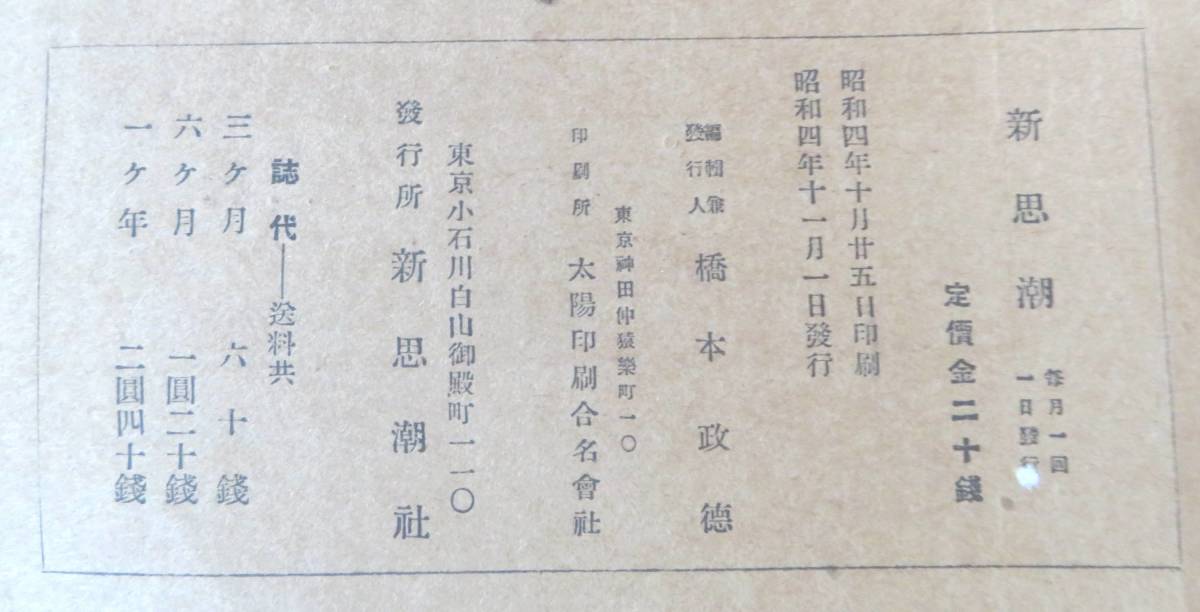 新思潮
毎月一回
一日發行
定價金二十錢
昭和四年十月廿五日印刷
昭和四年十一月一日發行
編輯兼
發行人
橋本政德
東京神田仲猿樂町一〇
印刷所 太陽印刷合名會社
東京小石川白山御殿町一一〇
發行所 新思潮社
誌代――送料共
三ケ月 六十錢
六ケ月 一圓二十錢
一ケ年 二圓四十錢